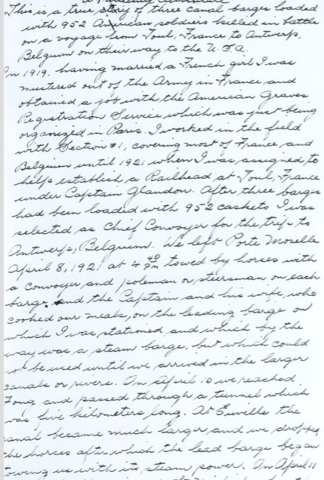 This is a true story of three canal barges loaded
with 952 American soldiers killed in battle
on a voyage from Toul, France to Antwerp,
Belgium on their way to the U.S.A.
In 1919, having married a French girl I was
mustered out of the Army in France and
obtained a job with the American Graves
Registration Service which was just being
organized in Paris. I worked in the field
with Section #1, covering most of France, and
Belgium until 1921 when I was assigned to
help establish a Railhead at Toul, France
under Captain Glandon. After three barges
had been loaded with 952 caskets I was
selected as Chief Convoyer for the trip to
Antwerp, Belgium. We left Porte Moselle
April 8, 1921 at 4 PM towed by horses with
a Convoyer and poleman or steersman on each
barge and the Captain and his wife, who
cooked our meals, on the leading barge on
which I was stationed and which by the
way was a steam barge, but which could
not be used until we arrived in the larger
canals or rivers. On April 10 we reached
Foug and passed through a tunnel which
was five kilometers long. At
canal became much larger and we dropped
the horses after which the lead barge began
towing us with its steam power. On April 11